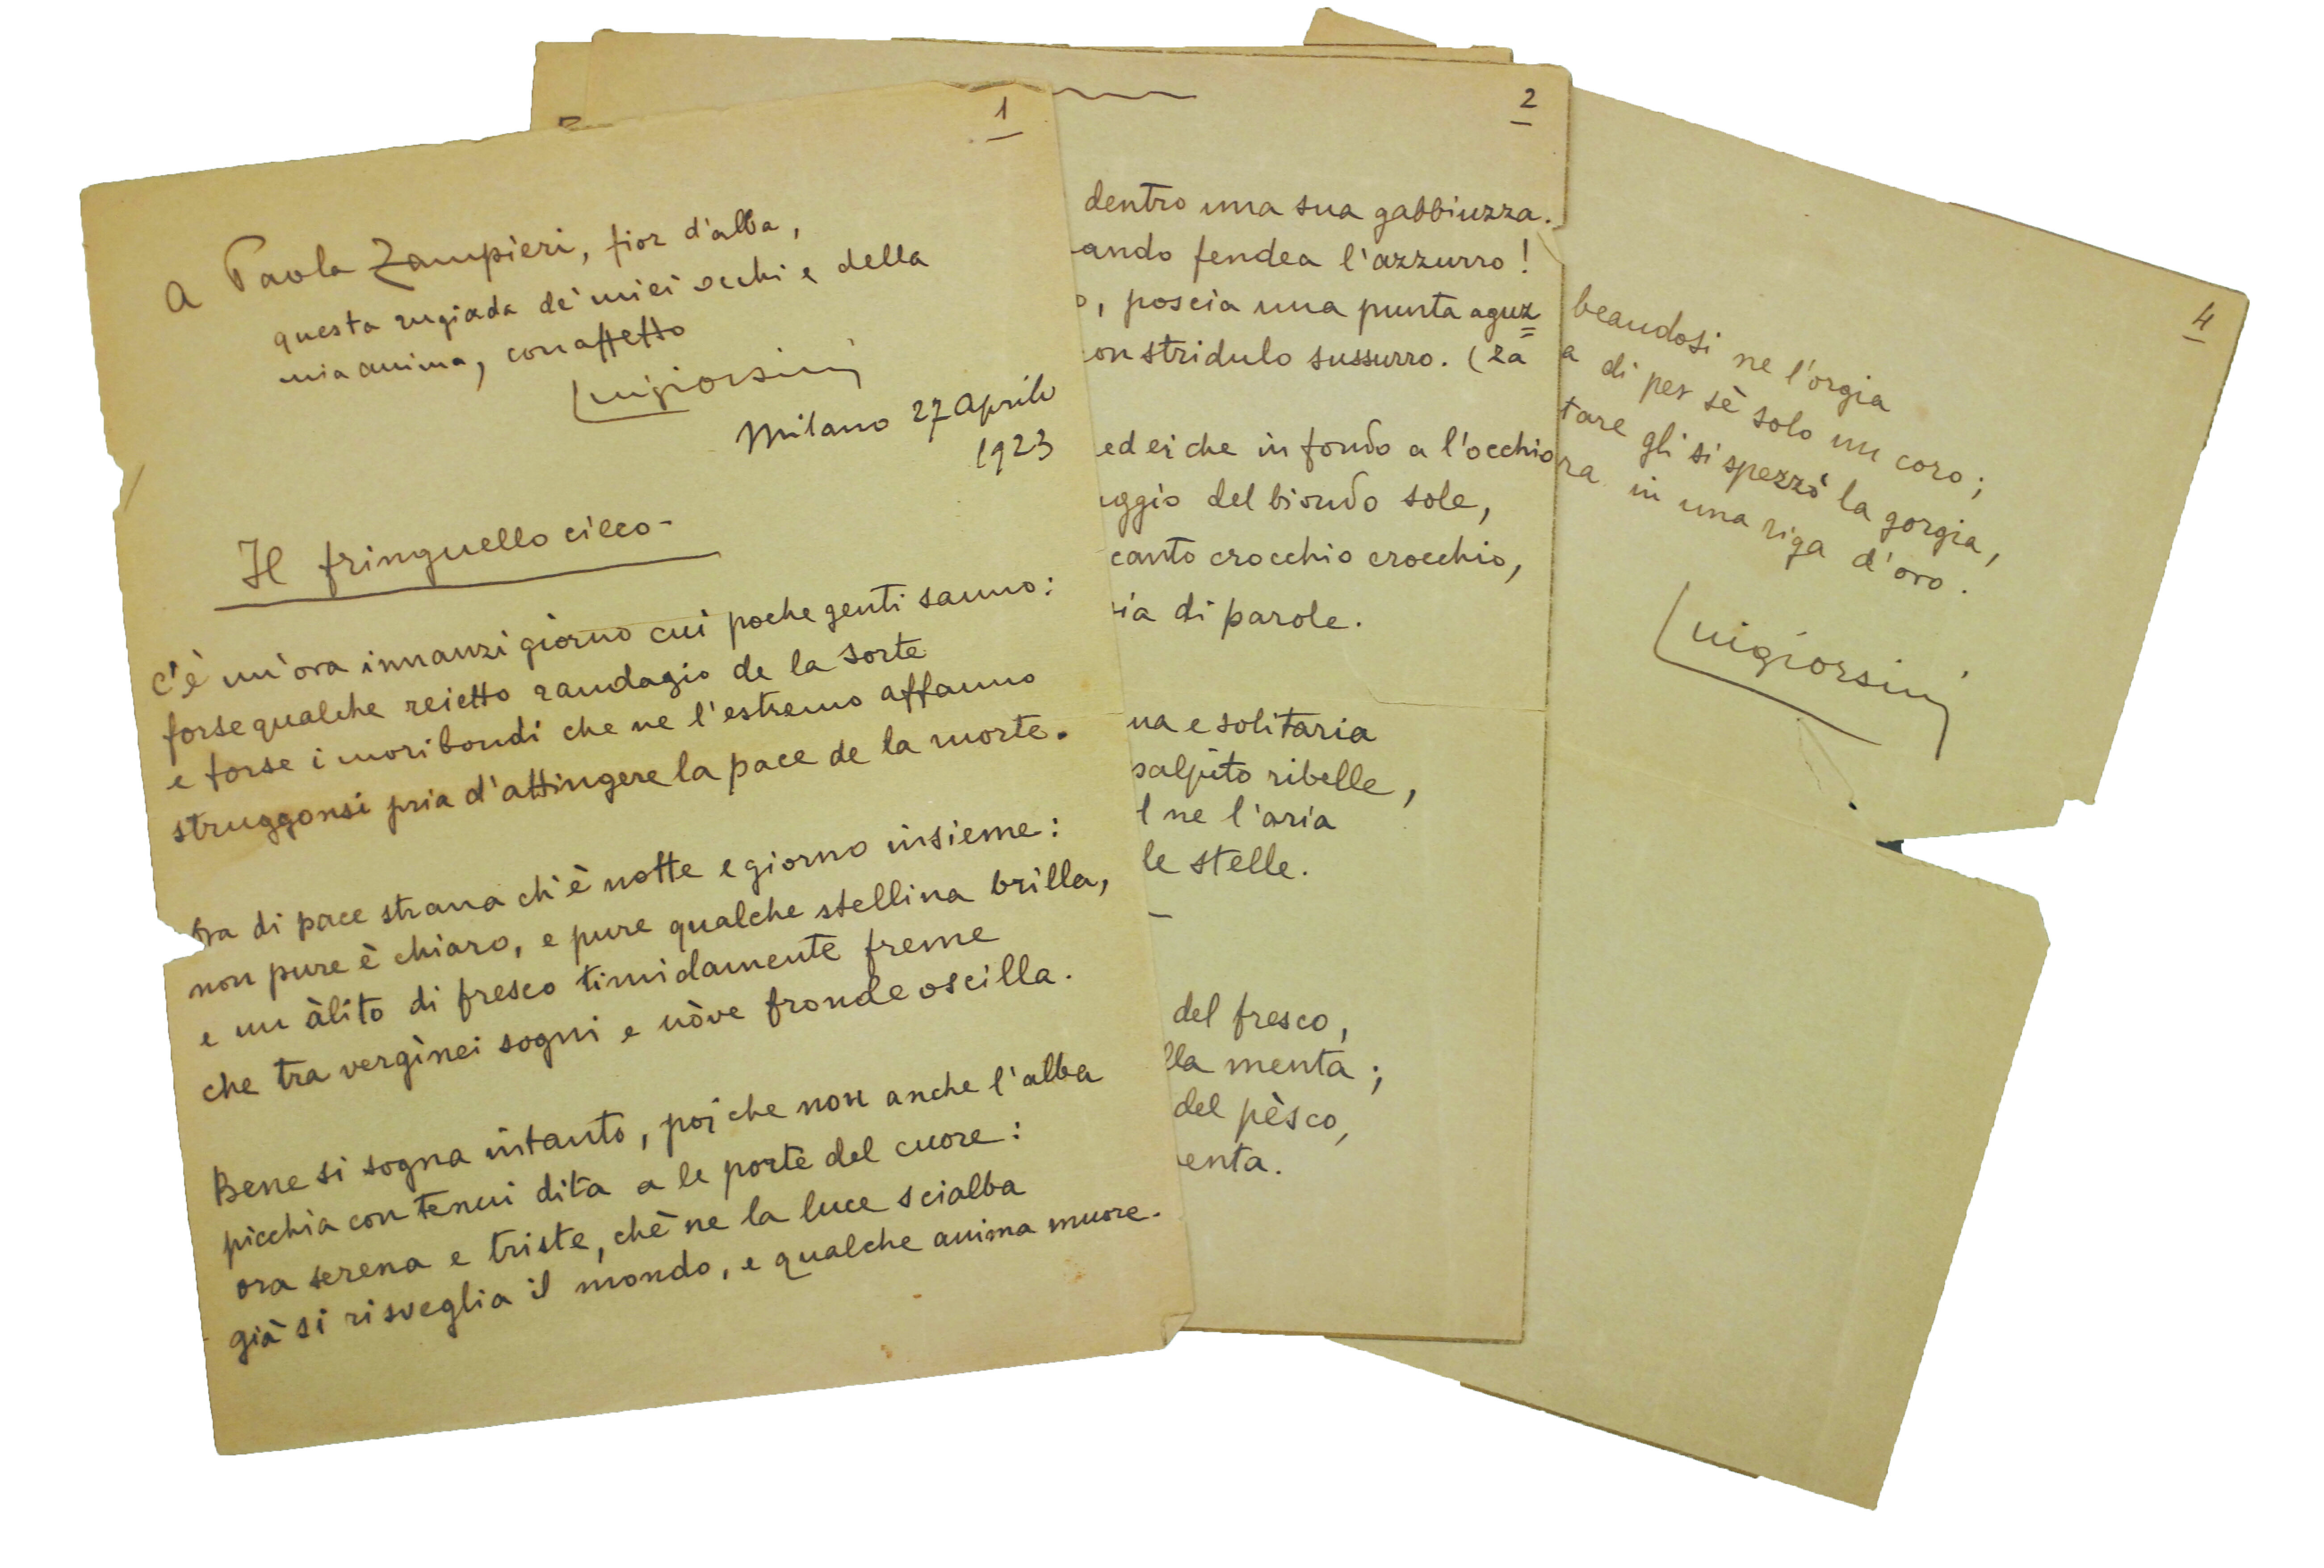 1
A Paola Zampieri, fior d'alba,
questa rugiada de' miei occhi e della
mia anima, con affetto
Luigiorsini
Milano 27 Aprile
1923
Il fringuello cieco -
C'è un'ora innanzi giorno cui poche genti sanno:
forse qualche reietto randagio de la sorte
e forse i moribondi che ne l'estremo affanno
struggonsi pria d'attingere la pace de la morte.
Ora di pace strana ch'è notte e giorno insieme:
non pure è chiaro, e pure qualche stellina brilla,
e un àlito di fresco timidamente freme
che tra vergìnei sogni e nòve fronde oscilla.
Bene si sogna intanto, poi che non anche l'alba
picchia con tenui dita a le porte del cuore:
ora serena e triste, chè ne la luce scialba
già si risveglia il mondo, e qualche anima muore.
2
dentro una sua gabbiuzza.
ando fendea l'azzurro!
o, poscia una punta aguz=
on stridulo sussurro. (za
ed ei che in fondo a l'occhio
aggio del biondo sole,
canto crocchio crocchio,
ia di parole.
na e solitaria
palpito ribelle,
l ne l'aria
le stelle.
del fresco,
lla menta;
del pèsco,
enta.
4
beandosi ne l'orgia
a di per sè solo un coro;
tare gli si spezzò la gorgia,
ra in una riga d'oro.
Luigiorsini